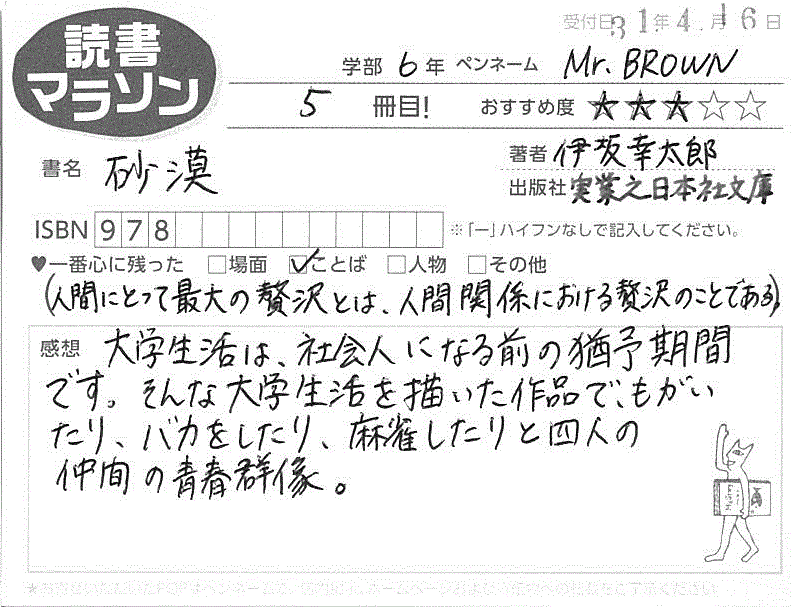 受付日 31年 4月 16日
読書
マラソン
学部 6年 ペンネーム Mr. BROWN
5 冊目! おすすめ度 ★★★☆☆
書名 砂漠
著者 伊坂幸太郎
出版社 実業之日本社文庫
ISBN 978 ※「ー」ハイフンなしで記入してください。
♥一番心に残った □場面 ☑ことば □人物 □その他
(人間にとって最大の贅沢とは、人間関係における贅沢のことである)
感想 大学生活は、社会人になる前の猶予期間
です。そんな大学生活を描いた作品で、もがい
たり、バカをしたり、麻雀したりと四人の
仲間の青春群像。